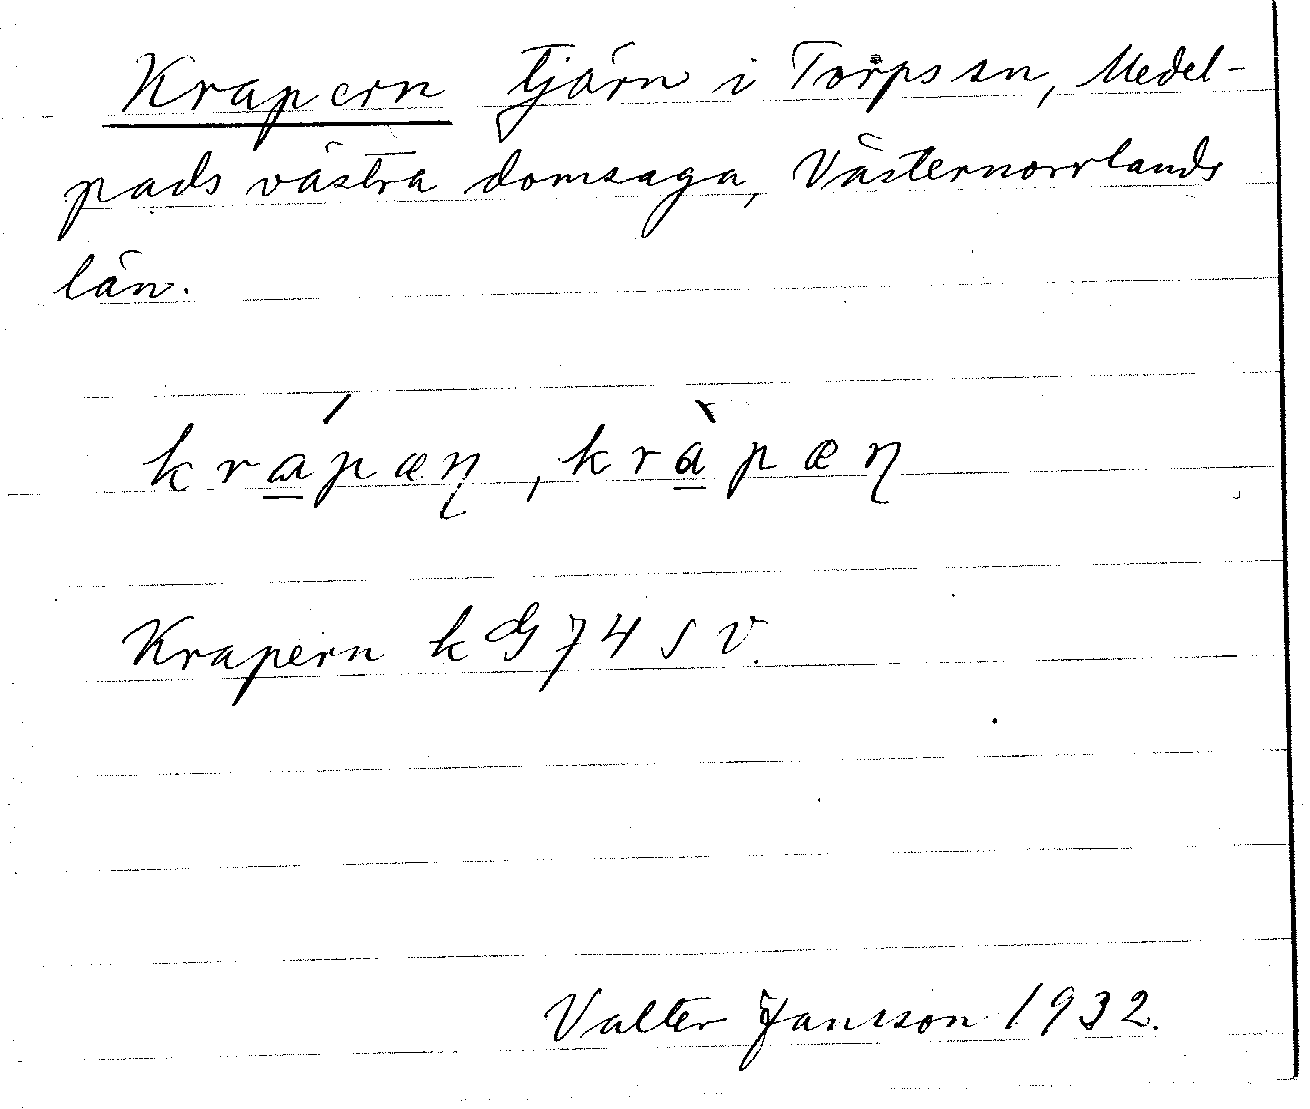 Krapern tjärn i Torps sn, Medel-
pads västra domsaga, Västernorrlands
län.
krápæɳ, kràpæɳ
Krapern k G 74 s v.
Valter Jansson 1932.